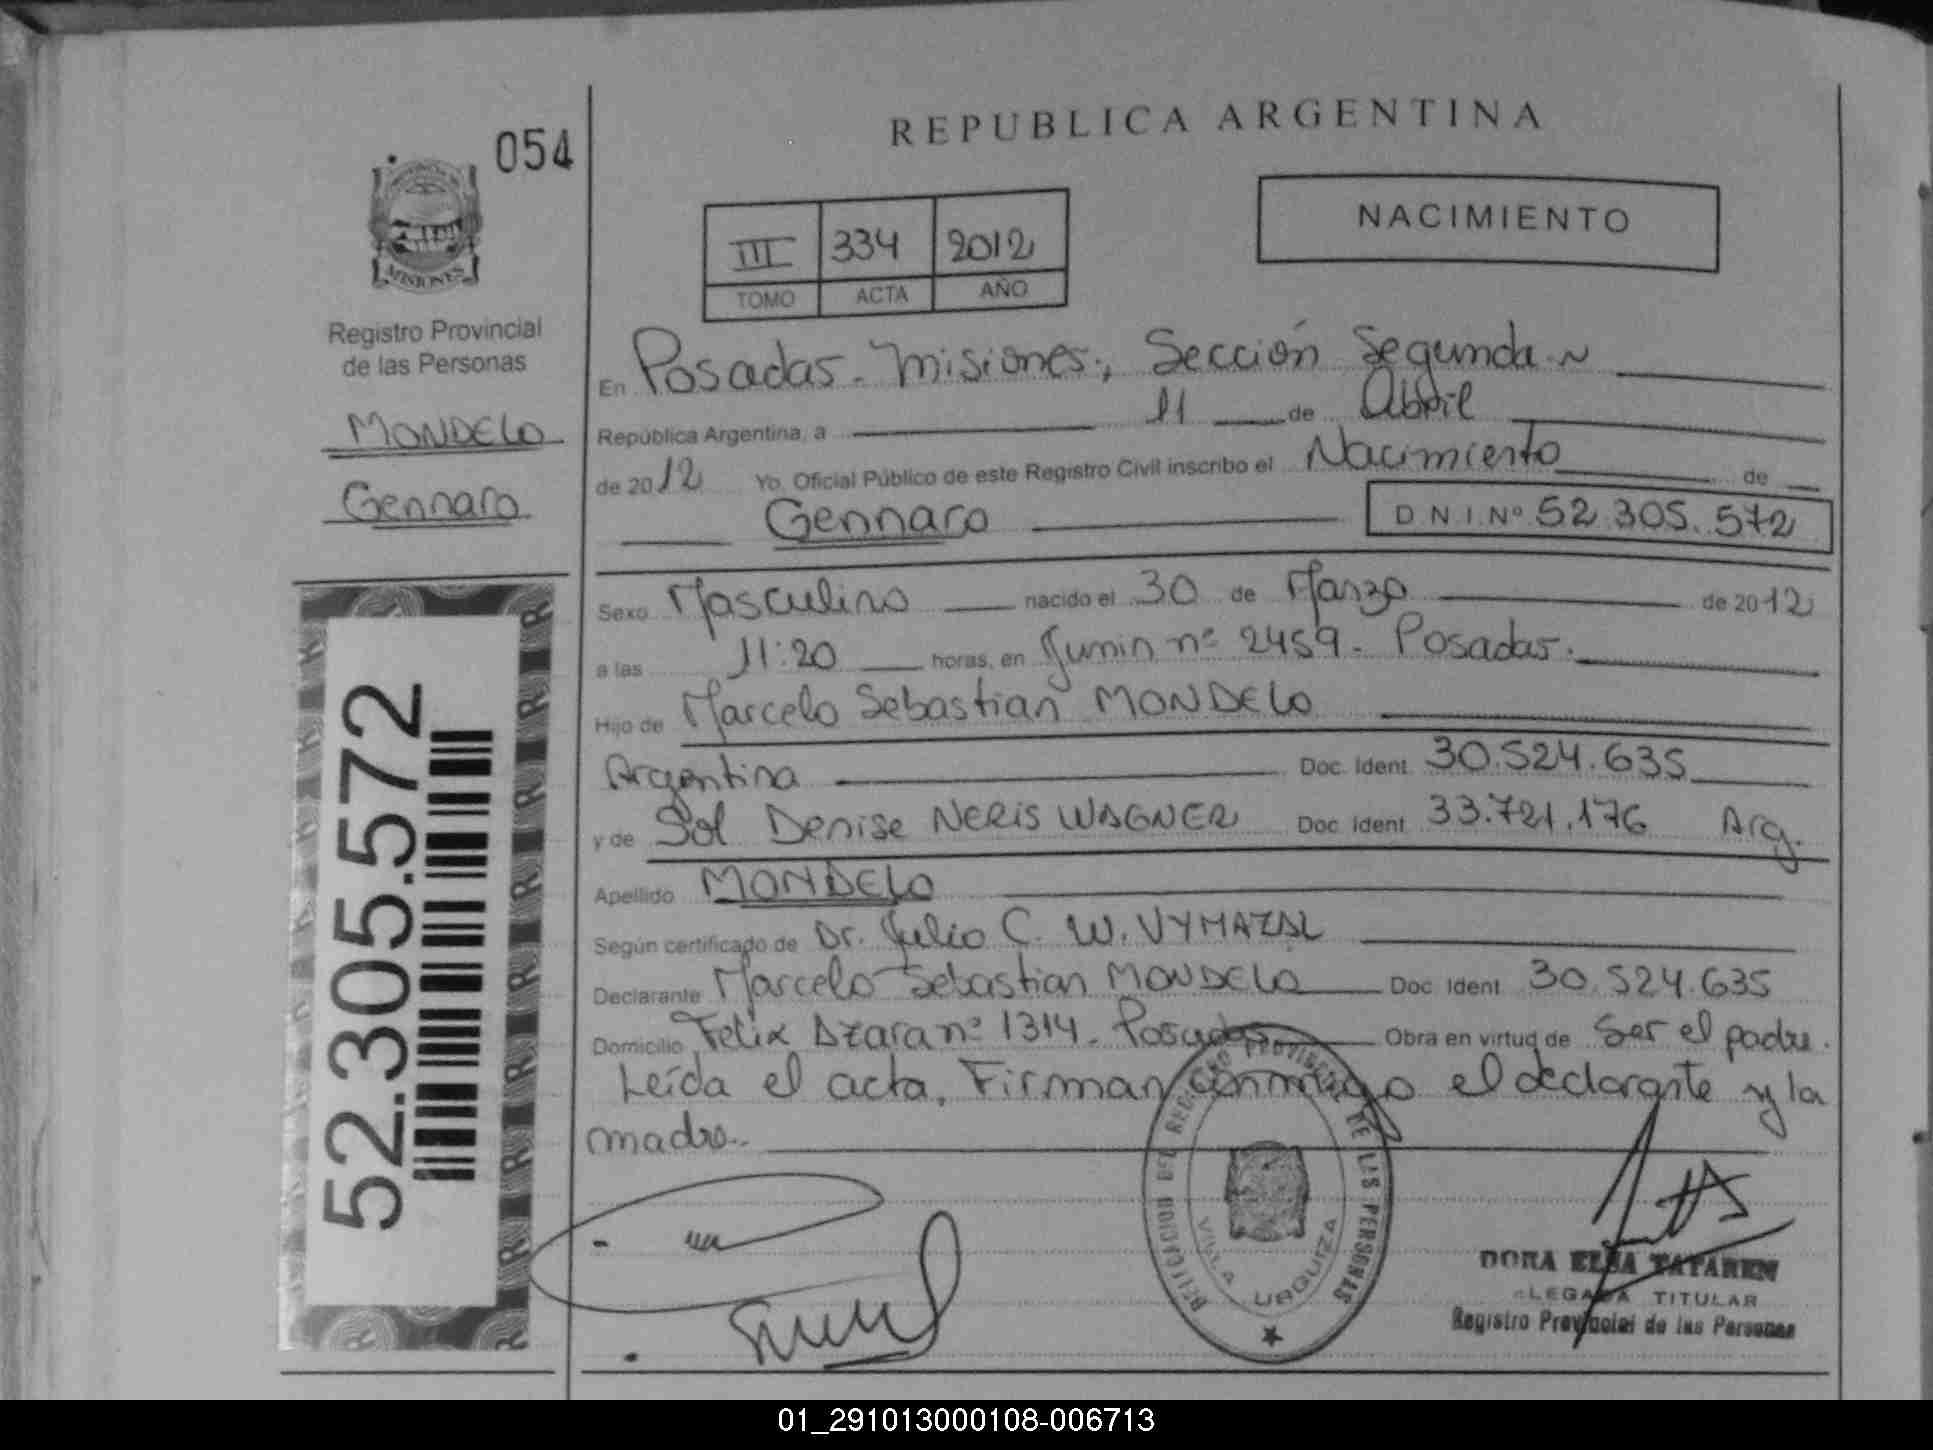 054
REPUBLICA ARGENTINA
NACIMIENTO
III 334 2012
TOMO ACTA AÑO
MISIONES
Registro Provincial
de las Personas
MONDELO
Gennaro
52.305.572
En Posadas - Misiones, Sección Segunda
República Argentina, a 11 de Abril
de 2012 Yo, Oficial Público de este Registro Civil inscribo el Nacimiento de
Gennaro DNI.Nº 52.305.572
Sexo Masculino nacido el 30 de Marzo de 2012
a las 11:20 horas, en Junin nº 2459 - Posadas.
Hijo de Marcelo Sebastian MONDELO
Argentina Doc. Ident. 30.524.635
y de Sol Denise NERIS WAGNER Doc. Ident. 33.721.176 Arg.
Apellido MONDELO
Según certificado de Dr. Julio C. W. VYMAZAL
Declarante Marcelo Sebastian MONDELO Doc. Ident. 30.524.635
Domicilio Felix Azara nº 1314 - Posadas Obra en virtud de Ser el padre.
Leída el acta, Firman conmigo el declarante y la
madre.
DEL REGISTRO PROVINCIAL DE LAS PERSONAS
VILLA URQUIZA
DORA ELSA TATAREN
DELEGADA TITULAR
Registro Provincial de las Personas
01_291013000108-006713